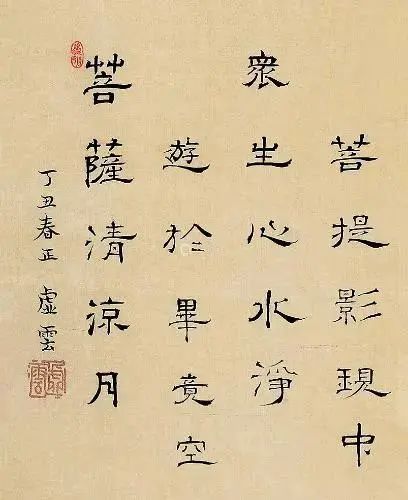 菩薩清涼月
遊於畢竟空
眾生心水淨
菩提影現中
丁丑春正 虛雲
虛雲